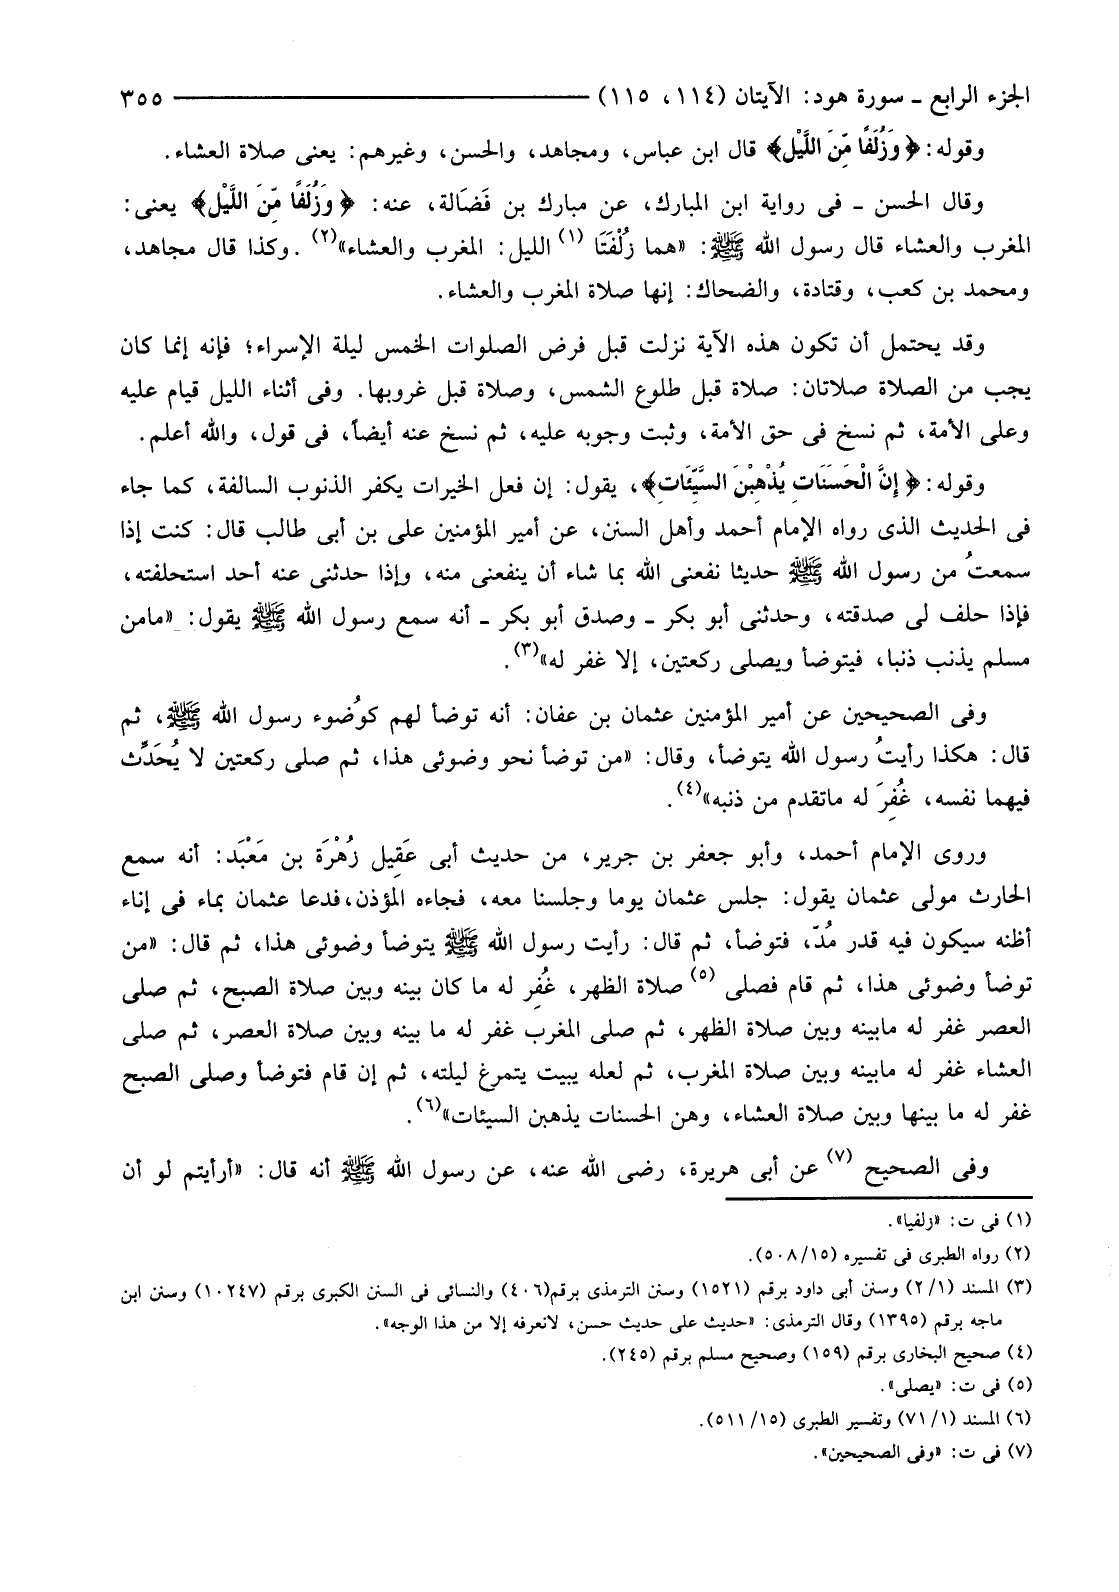 الجزء الرابع ـ سورة هود: الآيتان (١١٤، ١١٥) ٣٥٥
وقوله: ﴿وَزُلَفًا مِّنَ اللَّيْلِ﴾ قال ابن عباس، ومجاهد، والحسن، وغيرهم: يعنى صلاة العشاء.
وقال الحسن ـ فى رواية ابن المبارك، عن مبارك بن فَضَالة، عنه: ﴿وَزُلَفًا مِّنَ اللَّيْلِ﴾ يعنى:
المغرب والعشاء قال رسول الله ﷺ: «هما زُلْفَتَا (١) الليل: المغرب والعشاء»(٢) .وكذا قال مجاهد،
ومحمد بن كعب، وقتادة، والضحاك: إنها صلاة المغرب والعشاء.
وقد يحتمل أن تكون هذه الآية نزلت قبل فرض الصلوات الخمس ليلة الإسراء؛ فإنه إنما كان
يجب من الصلاة صلاتان: صلاة قبل طلوع الشمس، وصلاة قبل غروبها. وفى أثناء الليل قيام عليه
وعلى الأمة، ثم نسخ فى حق الأمة، وثبت وجوبه عليه، ثم نسخ عنه أيضاً، فى قول، والله أعلم.
وقوله: ﴿إِنَّ الْحَسَنَاتِ يُذْهِبْنَ السَّيِّئَاتِ﴾، يقول: إن فعل الخيرات يكفر الذنوب السالفة، كما جاء
فى الحديث الذى رواه الإمام أحمد وأهل السنن، عن أمير المؤمنين على بن أبى طالب قال: كنت إذا
سمعتُ من رسول الله ﷺ حديثا نفعنى الله بما شاء أن ينفعنى منه، وإذا حدثنى عنه أحد استحلفته،
فإذا حلف لى صدقته، وحدثنى أبو بكر ـ وصدق أبو بكر ـ أنه سمع رسول الله ﷺ يقول: «مامن
مسلم يذنب ذنبا، فيتوضأ ويصلى ركعتين، إلا غفر له»(٣).
وفى الصحيحين عن أمير المؤمنين عثمان بن عفان: أنه توضأ لهم كوُضوء رسول الله ﷺ، ثم
قال: هكذا رأيتُ رسول الله يتوضأ، وقال: «من توضأ نحو وضوئى هذا، ثم صلى ركعتين لا يُحَدِّث
فيهما نفسه، غُفِرَ له ماتقدم من ذنبه»(٤).
وروى الإمام أحمد، وأبو جعفر بن جرير، من حديث أبى عَقِيل زُهْرَة بن مَعْبَد: أنه سمع
الحارث مولى عثمان يقول: جلس عثمان يوما وجلسنا معه، فجاءه المؤذن،فدعا عثمان بماء فى إناء
أظنه سيكون فيه قدر مُدّ، فتوضأ، ثم قال: رأيت رسول الله ﷺ يتوضأ وضوئى هذا، ثم قال: «من
توضأ وضوئى هذا، ثم قام فصلى (٥) صلاة الظهر، غُفِر له ما كان بينه وبين صلاة الصبح، ثم صلى
العصر غفر له مابينه وبين صلاة الظهر، ثم صلى المغرب غفر له ما بينه وبين صلاة العصر، ثم صلى
العشاء غفر له مابينه وبين صلاة المغرب، ثم لعله يبيت يتمرغ ليلته، ثم إن قام فتوضأ وصلى الصبح
غفر له ما بينها وبين صلاة العشاء، وهن الحسنات يذهبن السيئات»(٦).
وفى الصحيح (٧) عن أبى هريرة، رضى الله عنه، عن رسول الله ﷺ أنه قال: «أرأيتم لو أن
(١) فى ت: «زلفيا».
(٢) رواه الطبرى فى تفسيره (١٥/ ٥٠٨).
(٣) المسند (١/ ٢) وسنن أبى داود برقم (١٥٢١) وسنن الترمذى برقم(٤٠٦) والنسائى فى السنن الكبرى برقم (١٠٢٤٧) وسنن ابن
ماجه برقم (١٣٩٥) وقال الترمذى: «حديث على حديث حسن، لانعرفه إلا من هذا الوجه».
(٤) صحيح البخارى برقم (١٥٩) وصحيح مسلم برقم (٢٤٥).
(٥) فى ت: «يصلى».
(٦) المسند (١/ ٧١) وتفسير الطبرى (١٥/ ٥١١).
(٧) فى ت: «وفى الصحيحين».